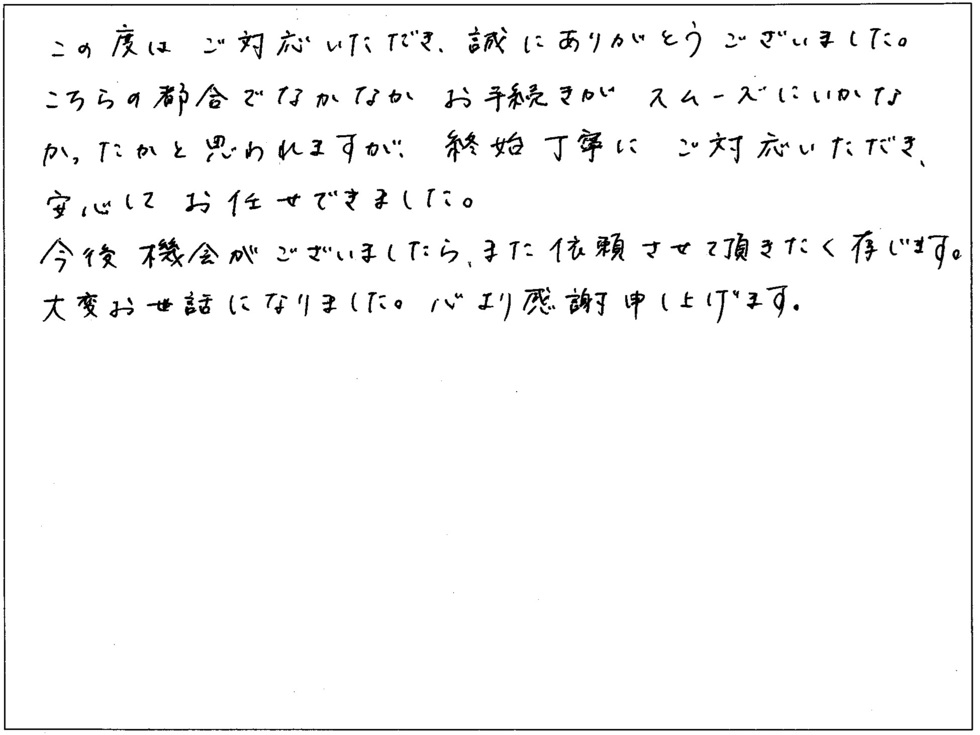 この度は ご対応いただき、誠にありがとうございました。
こちらの都合でなかなか お手続きが スムーズにいかな
かったかと思われますが、終始丁寧に ご対応いただき、
安心して お任せできました。
今後機会がございましたら、また依頼させて頂きたく存じます。
大変お世話になりました。心より感謝申し上げます。